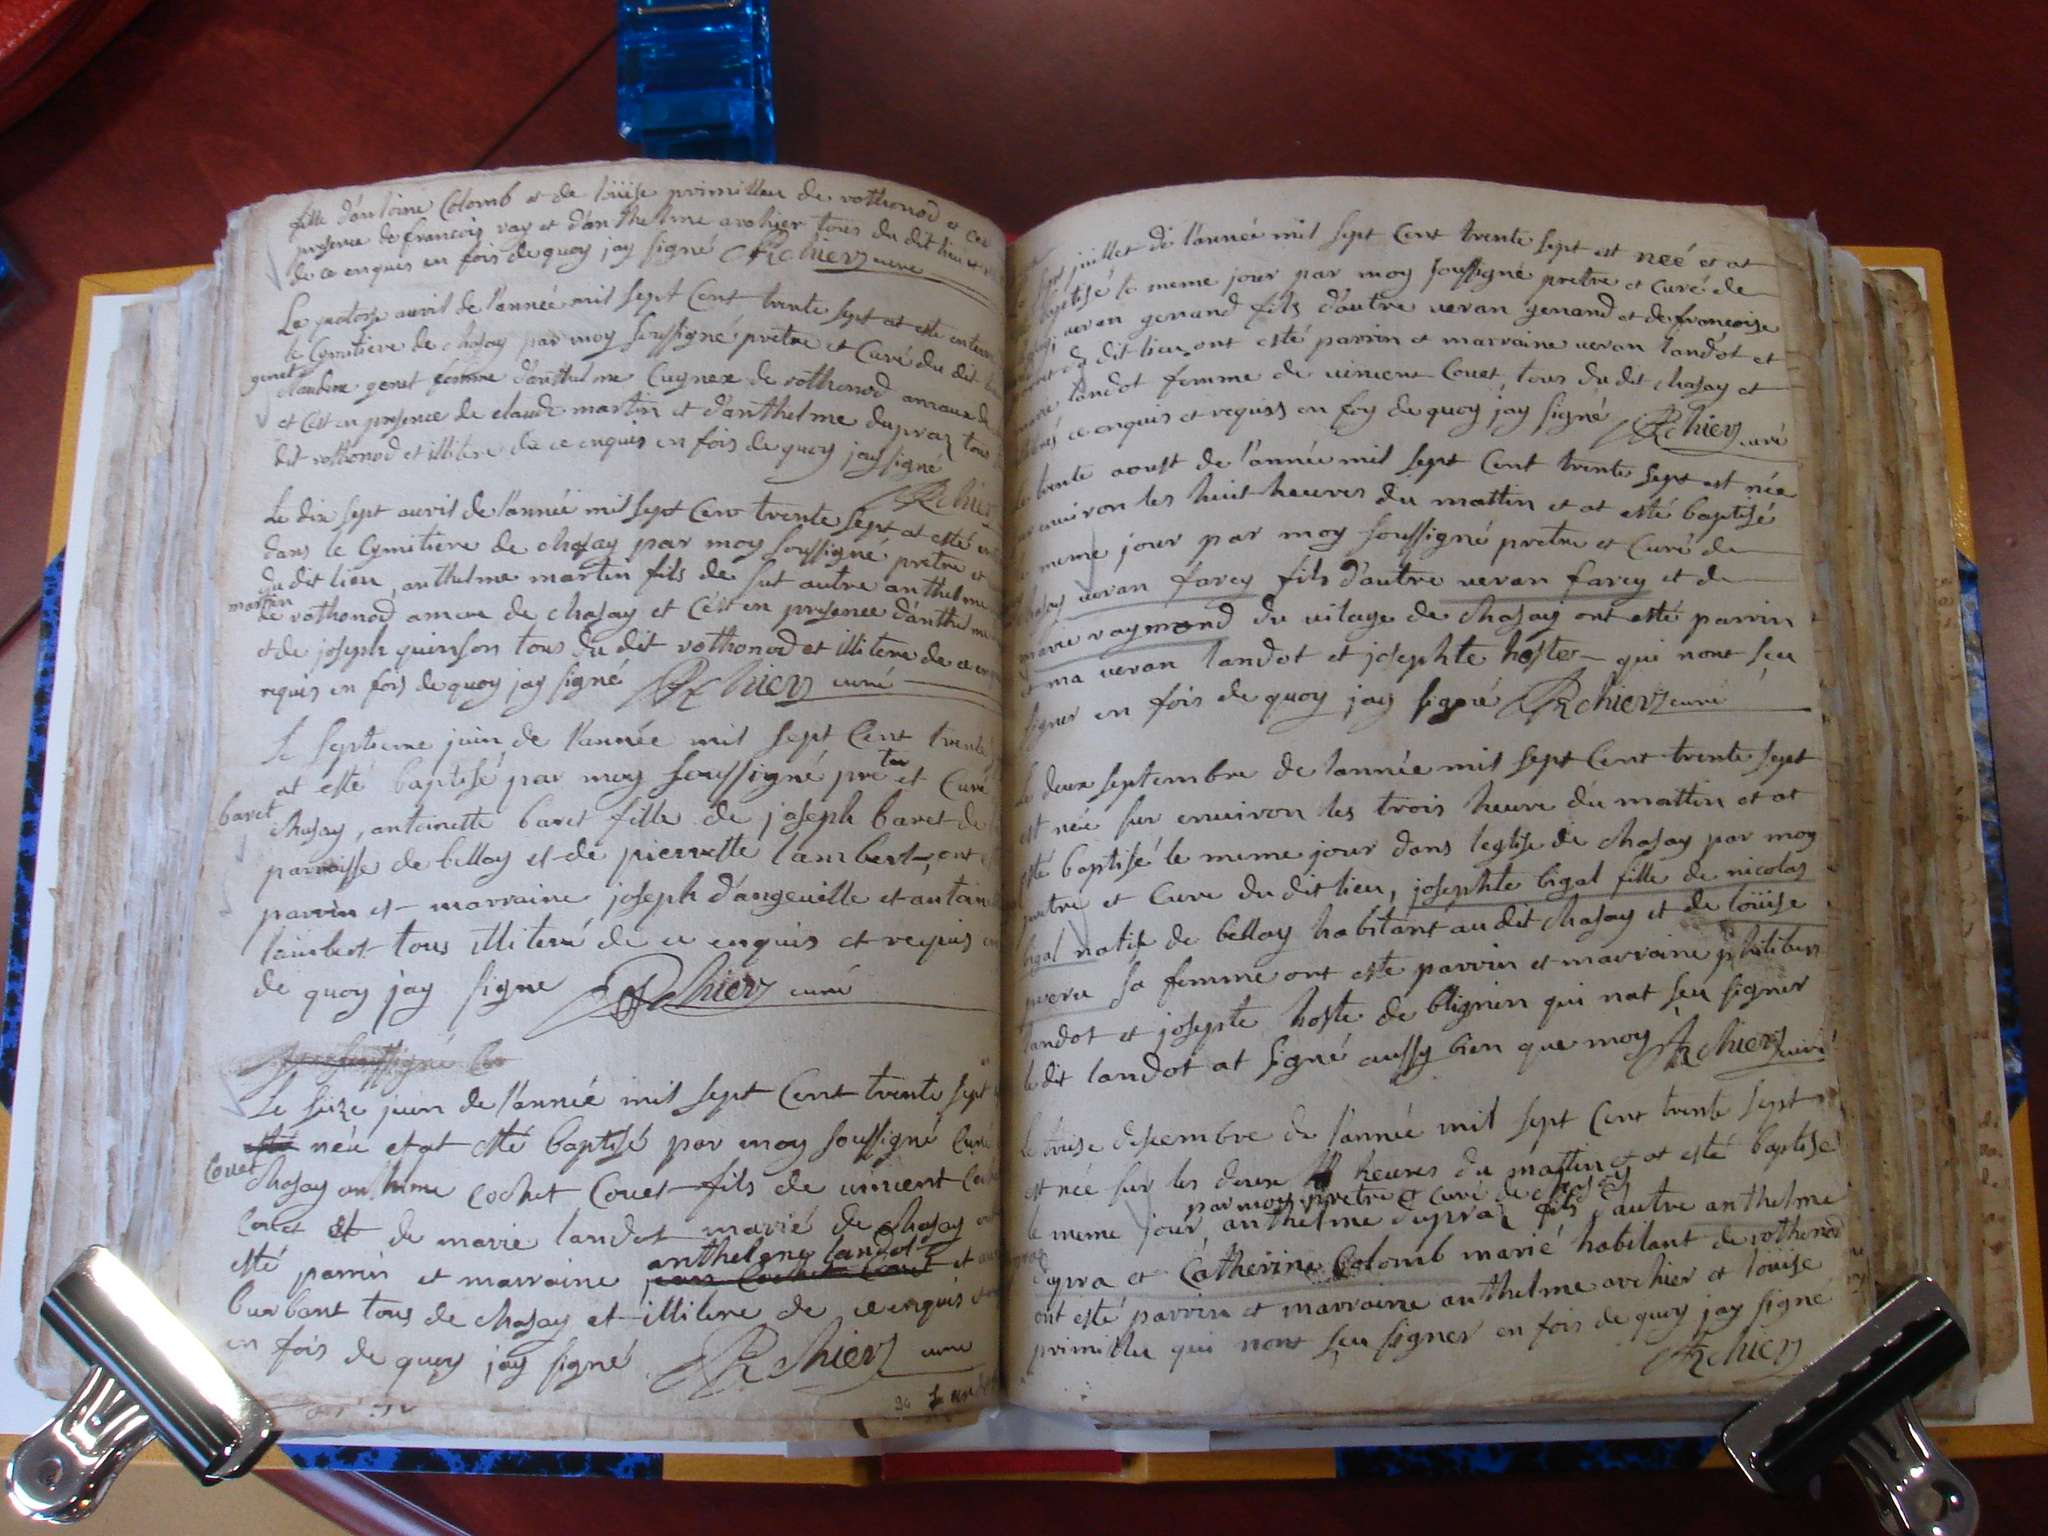 fille d'antoine Colomb et de loüise primilleu de rothonod et
presence de francois vay et d'anthelme archier tous du dit lieu et
de ce enquis en fois de quoy jay signé Archier curé
Le quatorse auril de l'année mil sept Cent trente sept at esté enterré
le Cymitiere de chasay par moy soussigné pretre et Curé du dit
genet
claudine genet femme d'anthelme Cuynex de rothonod annexe de
et c'est en presence de claude martin et d'anthelme dupraz tous
dit rothonod et illitere de ce enquis en fois de quoy jay signé
Archier
Le dix sept auril de l'année mil sept Cent trente sept at esté
dans le Cymitiere de chasay par moy soussigné pretre et
du dit lieu, anthelme martin fils de fut autre anthelme
martin
de rothonod annexe de chasay et c'est en presence d'anthelme
et de joseph quinson tous du dit rothonod et illitere de ce
requis en fois de quoy jay signé Archier curé
Le septieme juin de l'année mil sept Cent trente
at esté baptisé par moy soussigné pretre et Curé
baret
chasay, antoinette baret fille de joseph baret de
parroisse de belloy et de pierrette lambert, ont
parrin et marraine joseph d'angeuille et
lambert tous illiteré de ce enquis et requis
de quoy jay signe Archier curé
Le seize juin de l'année mil sept Cent trente sept
née et at esté baptisé par moy soussigné Curé
Couet
chasay anthelme cochet Couet fils de vincent
Couet et de marie landot marié de chasay
anthelme landot
esté parrin et marraine jean Cochet Couet et
burbant tous de chasay et illitere de ce enquis
en fois de quoy jay signé Archier curé
juillet de l'année mil sept Cent trente sept est neé et at
baptisé le meme jour par moy soussigné pretre et Curé de
ueran genand fils d'autre ueran genand et de francoise
du dit lieu, ont esté parrin et marraine ueran landot et
landot femme de vincent Couet, tous du dit chasay et
ce enquis et requis en foy de quoy jay signé Archier curé
Le trente aoust de l'année mil sept Cent trente sept est née
enuiron les huit heures du mattin et at esté baptisé
meme jour par moy soussigné pretre et Curé de
chasay ueran farcy fils d'autre ueran farcy et de
marie raymond du uilage de chasay ont esté parrin
et ma ueran landot et josephte hoste qui nont seu
signer en fois de quoy jay signé Archier curé
Le deux septembre de lannée mil sept Cent trente sept
est née sur enuiron les trois heure du mattin et at
esté baptisé le meme jour dans leglise de chasay par moy
pretre et Cure du dit lieu, josephte bigal fille de nicolas
bigal natif de belloy habitant au dit chasay et de loüise
sa femme ont este parrin et marraine philibert
landot et josepte hoste de blignin qui nat seu signer
le dit landot at signé aussy bien que moy Archier curé
Le treise descembre de l'année mil sept Cent trente sept
est née sur les deux heures du mattin et at esté baptisé
par moy pretre et curé de chasay
le meme jour, anthelme dupraz fils d'autre anthelme
dupra et Catherine Colomb marié habitant de rothonod
ont esté parrin et marraine anthelme archier et loüise
primilleu qui nont seu signer en fois de quoy jay signé
Archier